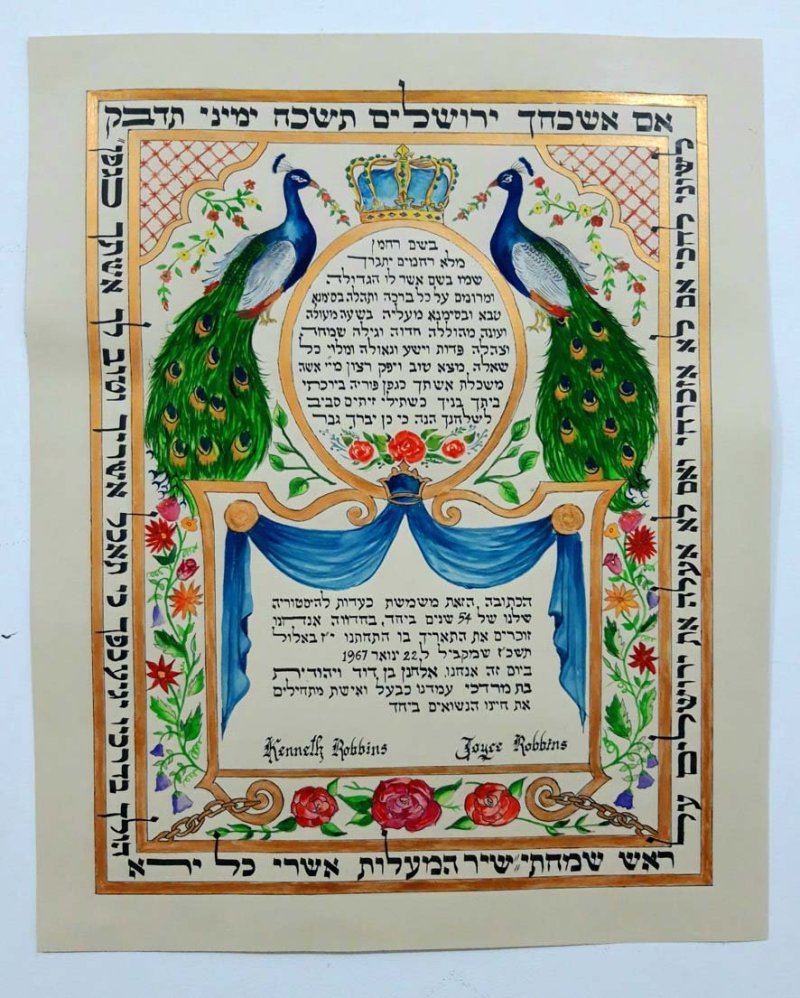 אם אשכחך ירושלים תשכח ימיני תדבק
לשוני לחכי אם לא אזכרכי ואם לא אעלה את ירושלים על
ראש שמחתי" שיר המעלות אשרי כל ירא
הולך בדרכיו יגיע כפך כי תאכל אשריך וטוב לך אשתך כגפן"
בשם רחמן
מלא רחמים יתברך
שמו בשם אשר לו הגדולה
ומרומם על כל ברכה ותהלה בסימנא
טבא ובסימנא מעליה בשעה מעולה
ועונה מהוללה חדוה וגילה שמחה
וצהלה פדות וישע וגאולה ומלוי כל
שאלה, מצא טוב ויפק רצון מיי אשה
משכלת אשתך כגפן פוריה בירכתי
ביתך בניך כשתילי זיתים סביב
לשלחנך הנה כי כן יברך גבר
הכתובה הזאת משמשת כעדות להיסטוריה
שלנו של 54 שנים ביחד, בחדווה אנחנו
זוכרים את התאריך בו התחתנו י"ז באלול
תשכ"ז שמקביל ל, 22 ינואר 1967
ביום זה אנחנו, אלחנן בן דוד ויהודית
בת מרדכי עמדנו כבעל ואישת מתחילים
את חינו הנשואים ביחד
Kenneth Robbins Joyce Robbins